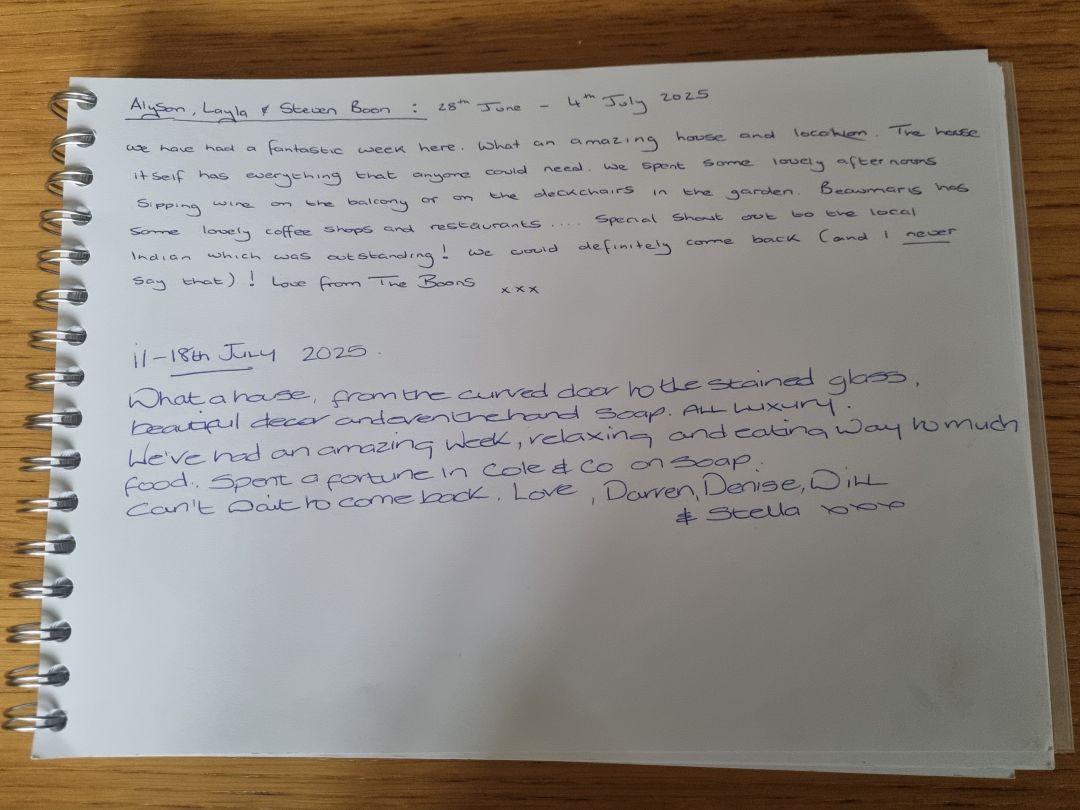 Alyson, Layla & Steven Boon : 28th June - 4th July 2025
We have had a fantastic week here. What an amazing house and location. The house
itself has everything that anyone could need. We spent some lovely afternouns
sipping wine on the balcony or on the deckchairs in the garden. Beaumaris has
some lovely coffee shops and restaurants .... Special shout out to the local
Indian which was outstanding! We would definitely come back (and I never
say that)! Love from The Boons xxx
11-18th July 2025.
What a house, from the curved door to the stained glass,
beautiful decor and even the hand soap. ALL LUXURY.
We've had an amazing week, relaxing and eating way to much
food. Spent a fortune in Cole & Co on soap.
Can't wait to come back. Love, Darren, Denise, Will
& Stella xxxx